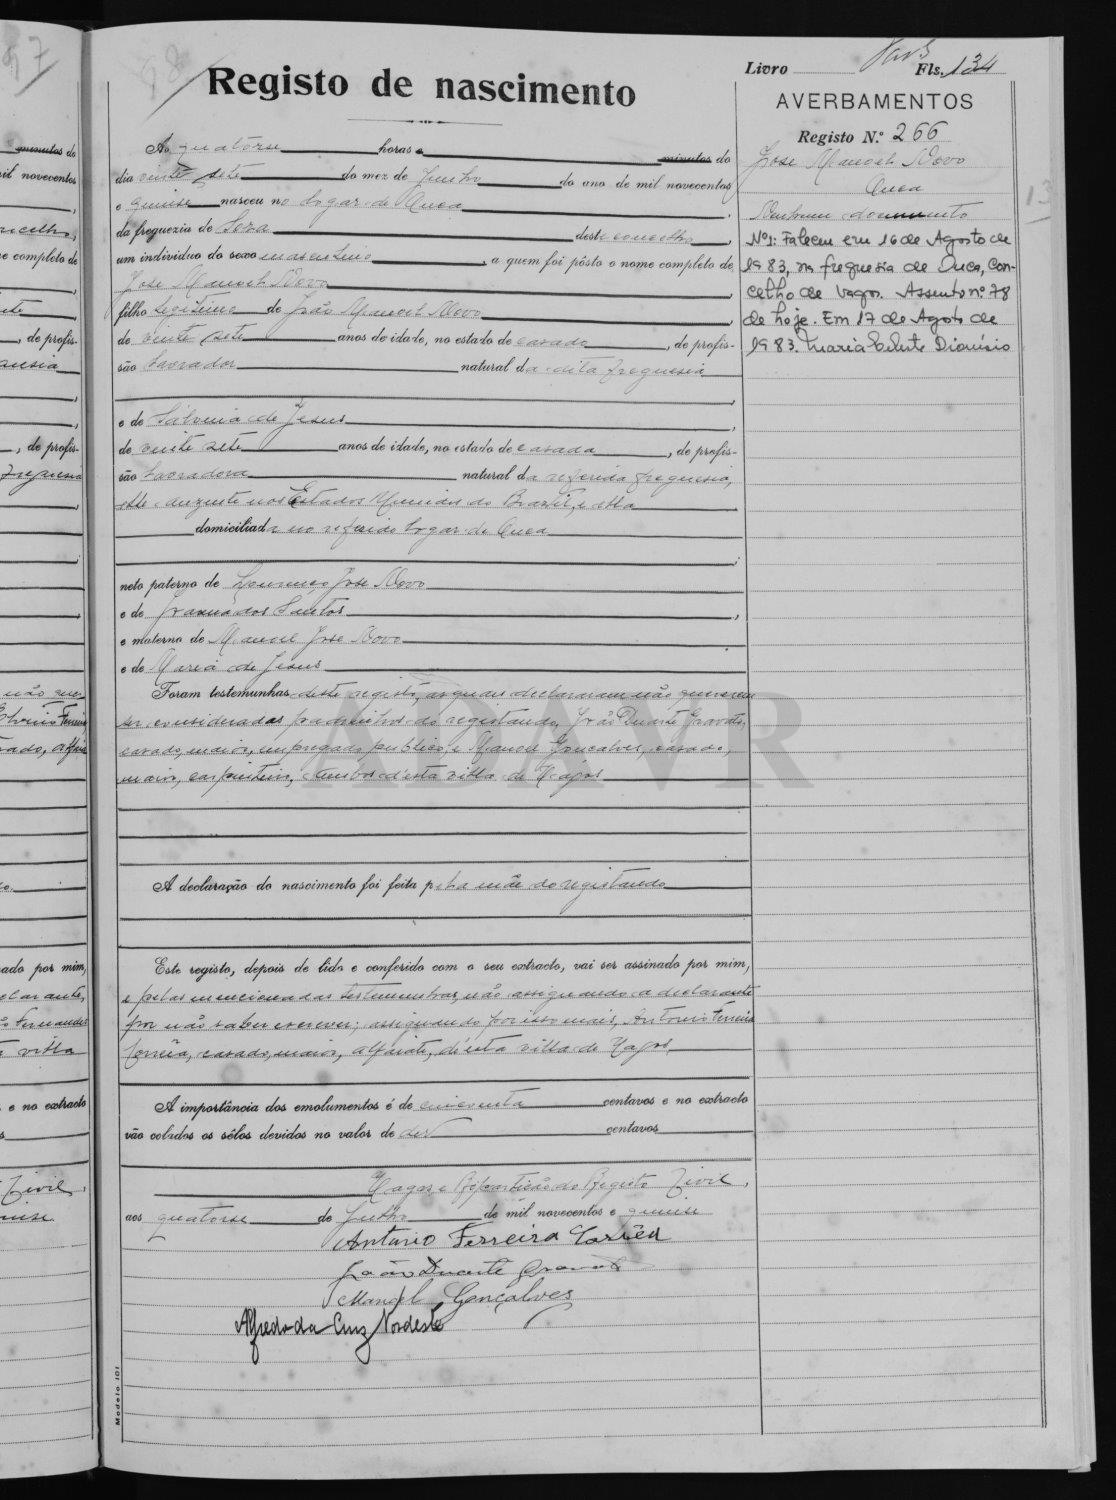 97
98
Livro Fls. 134
Registo de nascimento
AVERBAMENTOS
Registo N.º 266
Jose Manoel Novo
Ouca
Nenhum documento
Nº1: Faleceu em 16 de Agosto de
1983, na freguesia de Ouca, Con-
celho de Vagos. Assento nº 78
de hoje. Em 17 de Agosto de
1983. Maria Celeste Dionísio
13
Ás quatorse horas e minutos do
dia vinte sete do mez de Junho do ano de mil novecentos
e quinse nasceu no logar de Ouca,
da freguezia de Soza deste concelho,
um individuo do sexo masculino, a quem foi pôsto o nome completo de
Jose Manoel Novo,
filho legitimo de João Manoel Novo,
de vinte sete anos de idade, no estado de casado, de profis-
são lavrador natural da dita freguesia,
e de Silveria de Jesus,
de vinte sete anos de idade, no estado de casada, de profis-
são lavradora natural da referida freguesia,
elle ausente nos Estados Unidos do Brazil, e ella
domiciliada no referido logar de Ouca;
neto paterno de Lourenço Jose Novo
e de Joana dos Santos,
e materno de Manoel Jose Novo
e de Maria de Jesus
Foram testemunhas deste registo, as quaes declararam não quererem
ser consideradas padrinhos do registando, João Duarte Gravato,
casado, maior, empregado publico, e Manoel Gonçalves, casado,
maior, carpinteiro, ambos d'esta villa de Vagos
A declaração do nascimento foi feita pela mãe do registando
Este registo, depois de lido e conferido com o seu extracto, vai ser assinado por mim,
e pelas mencionadas testemunhas, não assignando a declarante
por não saber escrever; assignando por isso mais, Antonio Ferreira
Corrêa, casado, maior, alfaiate, d'esta villa de Vagos.
A importância dos emolumentos é de cincoenta centavos e no extracto
vão colados os sêlos devidos no valor de dez centavos
Vagos, e Repartição do Registo Civil,
aos quatorse de Julho de mil novecentos e quinse
Antonio Ferreira Corrêa
João Duarte Gravato
Manoel Gonçalves
Alfredo da Cruz Nordeste
Modelo 101
ADAVR